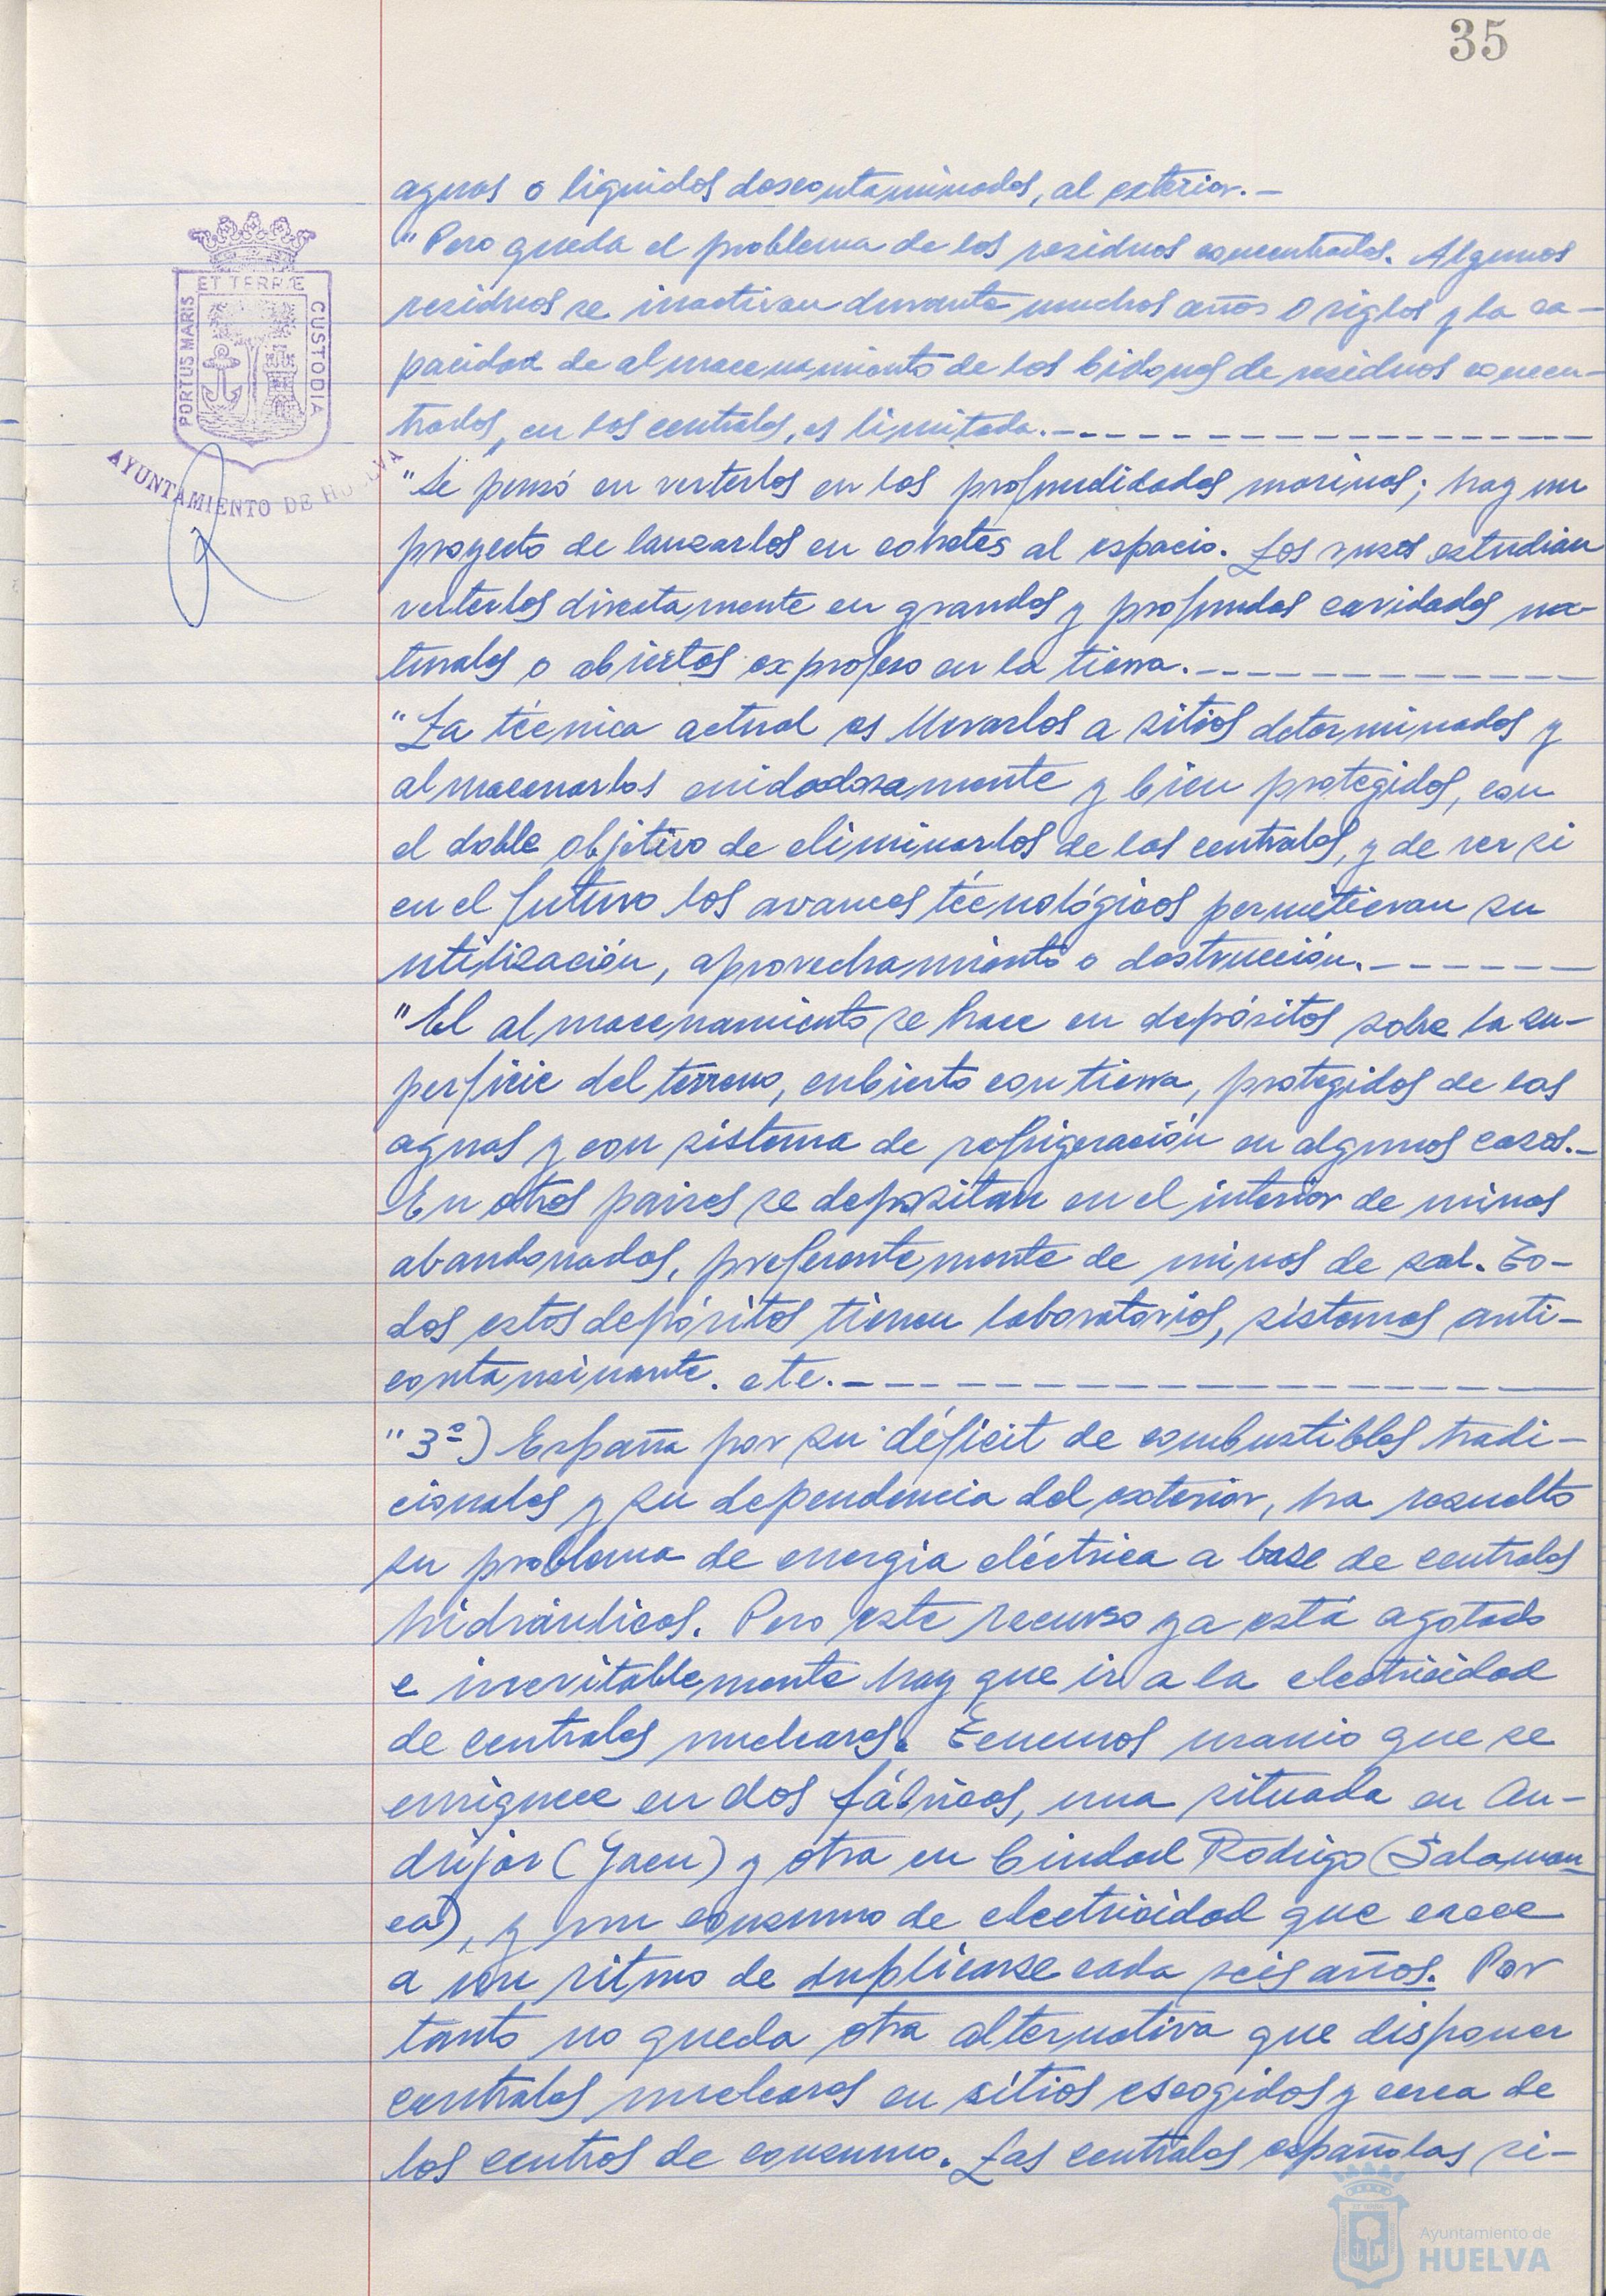 35
aguas o liquidos descontaminados, al exterior.-
"Pero queda el problema de los residuos concentrados. Algunos
residuos se inactivan durante muchos años o siglos y la ca-
pacidad de almacenamiento de los bidones de residuos concen-
trados, en las centrales, es limitada.-
"Se pensó en verterlos en las profundidades marinas; hay un
proyecto de lanzarlos en cohetes al espacio. Los rusos estudian
verterlos directamente en grandes y profundas cavidades na-
turales o abiertas exprofeso en la tierra.-
"La técnica actual es llevarlos a sitios determinados y
almacenarlos cuidadosamente y bien protegidos, con
el doble objetivo de eliminarlos de las centrales, y de ver si
en el futuro los avances técnológicos permitieran su
utilización, aprovechamiento o destrucción.-
"El almacenamiento se hace en depósitos sobre la su-
perficie del terreno, cubierto con tierra, protegidos de las
aguas y con sistema de refrigeración en algunos casos.-
En otros paises se depositan en el interior de minas
abandonadas, preferentemente de minas de sal. To-
dos estos depósitos tienen laboratorios, sistemas anti-
contaminante. etc.-
"3º) España por su déficit de combustibles tradi-
cionales y su dependencia del exterior, ha resuelto
su problema de energia eléctrica a base de centrales
hidráulicas. Pero este recurso ya está agotado
e inevitablemente hay que ir a la electricidad
de centrales nucleares. Tenemos uranio que se
enriquece en dos fábricas, una situada en An-
dujar (Jaen) y otra en Ciudad Rodrigo (Salaman-
ca), y un consumo de electricidad que crece
a un ritmo de duplicarse cada seis años. Por
tanto no queda otra alternativa que disponer
centrales nucleares en sitios escogidos y cerca de
los centros de consumo. Las centrales españolas si-
ET TERRÆ
PORTUS MARIS
CUSTODIA
AYUNTAMIENTO DE HUELVA
Ayuntamiento de
HUELVA